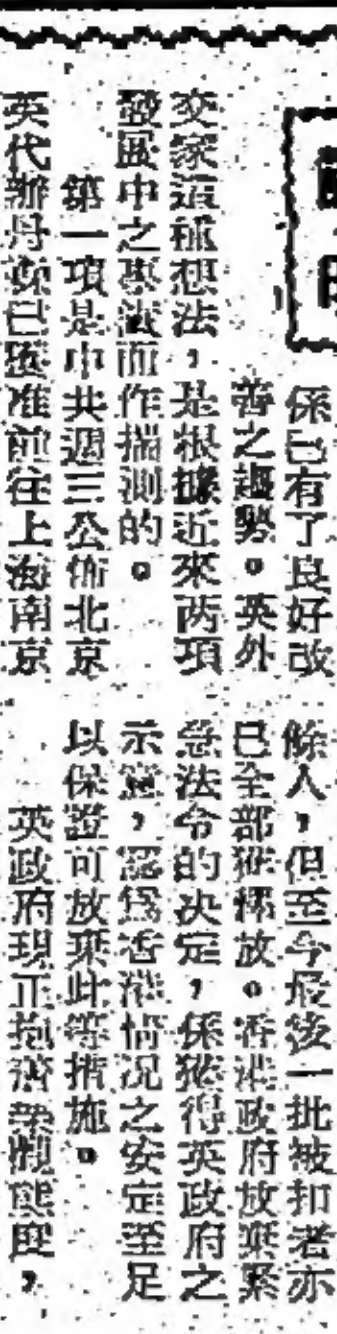 係已有了良好改
善之趨勢。英外
交家這種想法，是根據近來两項
發展中之事議而作揣測的。
第一項是中共週三公佈北京
英代辦丹頓已獲准前往上海南京
餘人，但至今最後一批被扣者亦
已全部獲釋放。香港政府放棄緊
急法令的决定，係獲得英政府之
示意，認爲香港情况之安定至足
以保證可放棄此等措施。
英政府現正抱審慎態度，